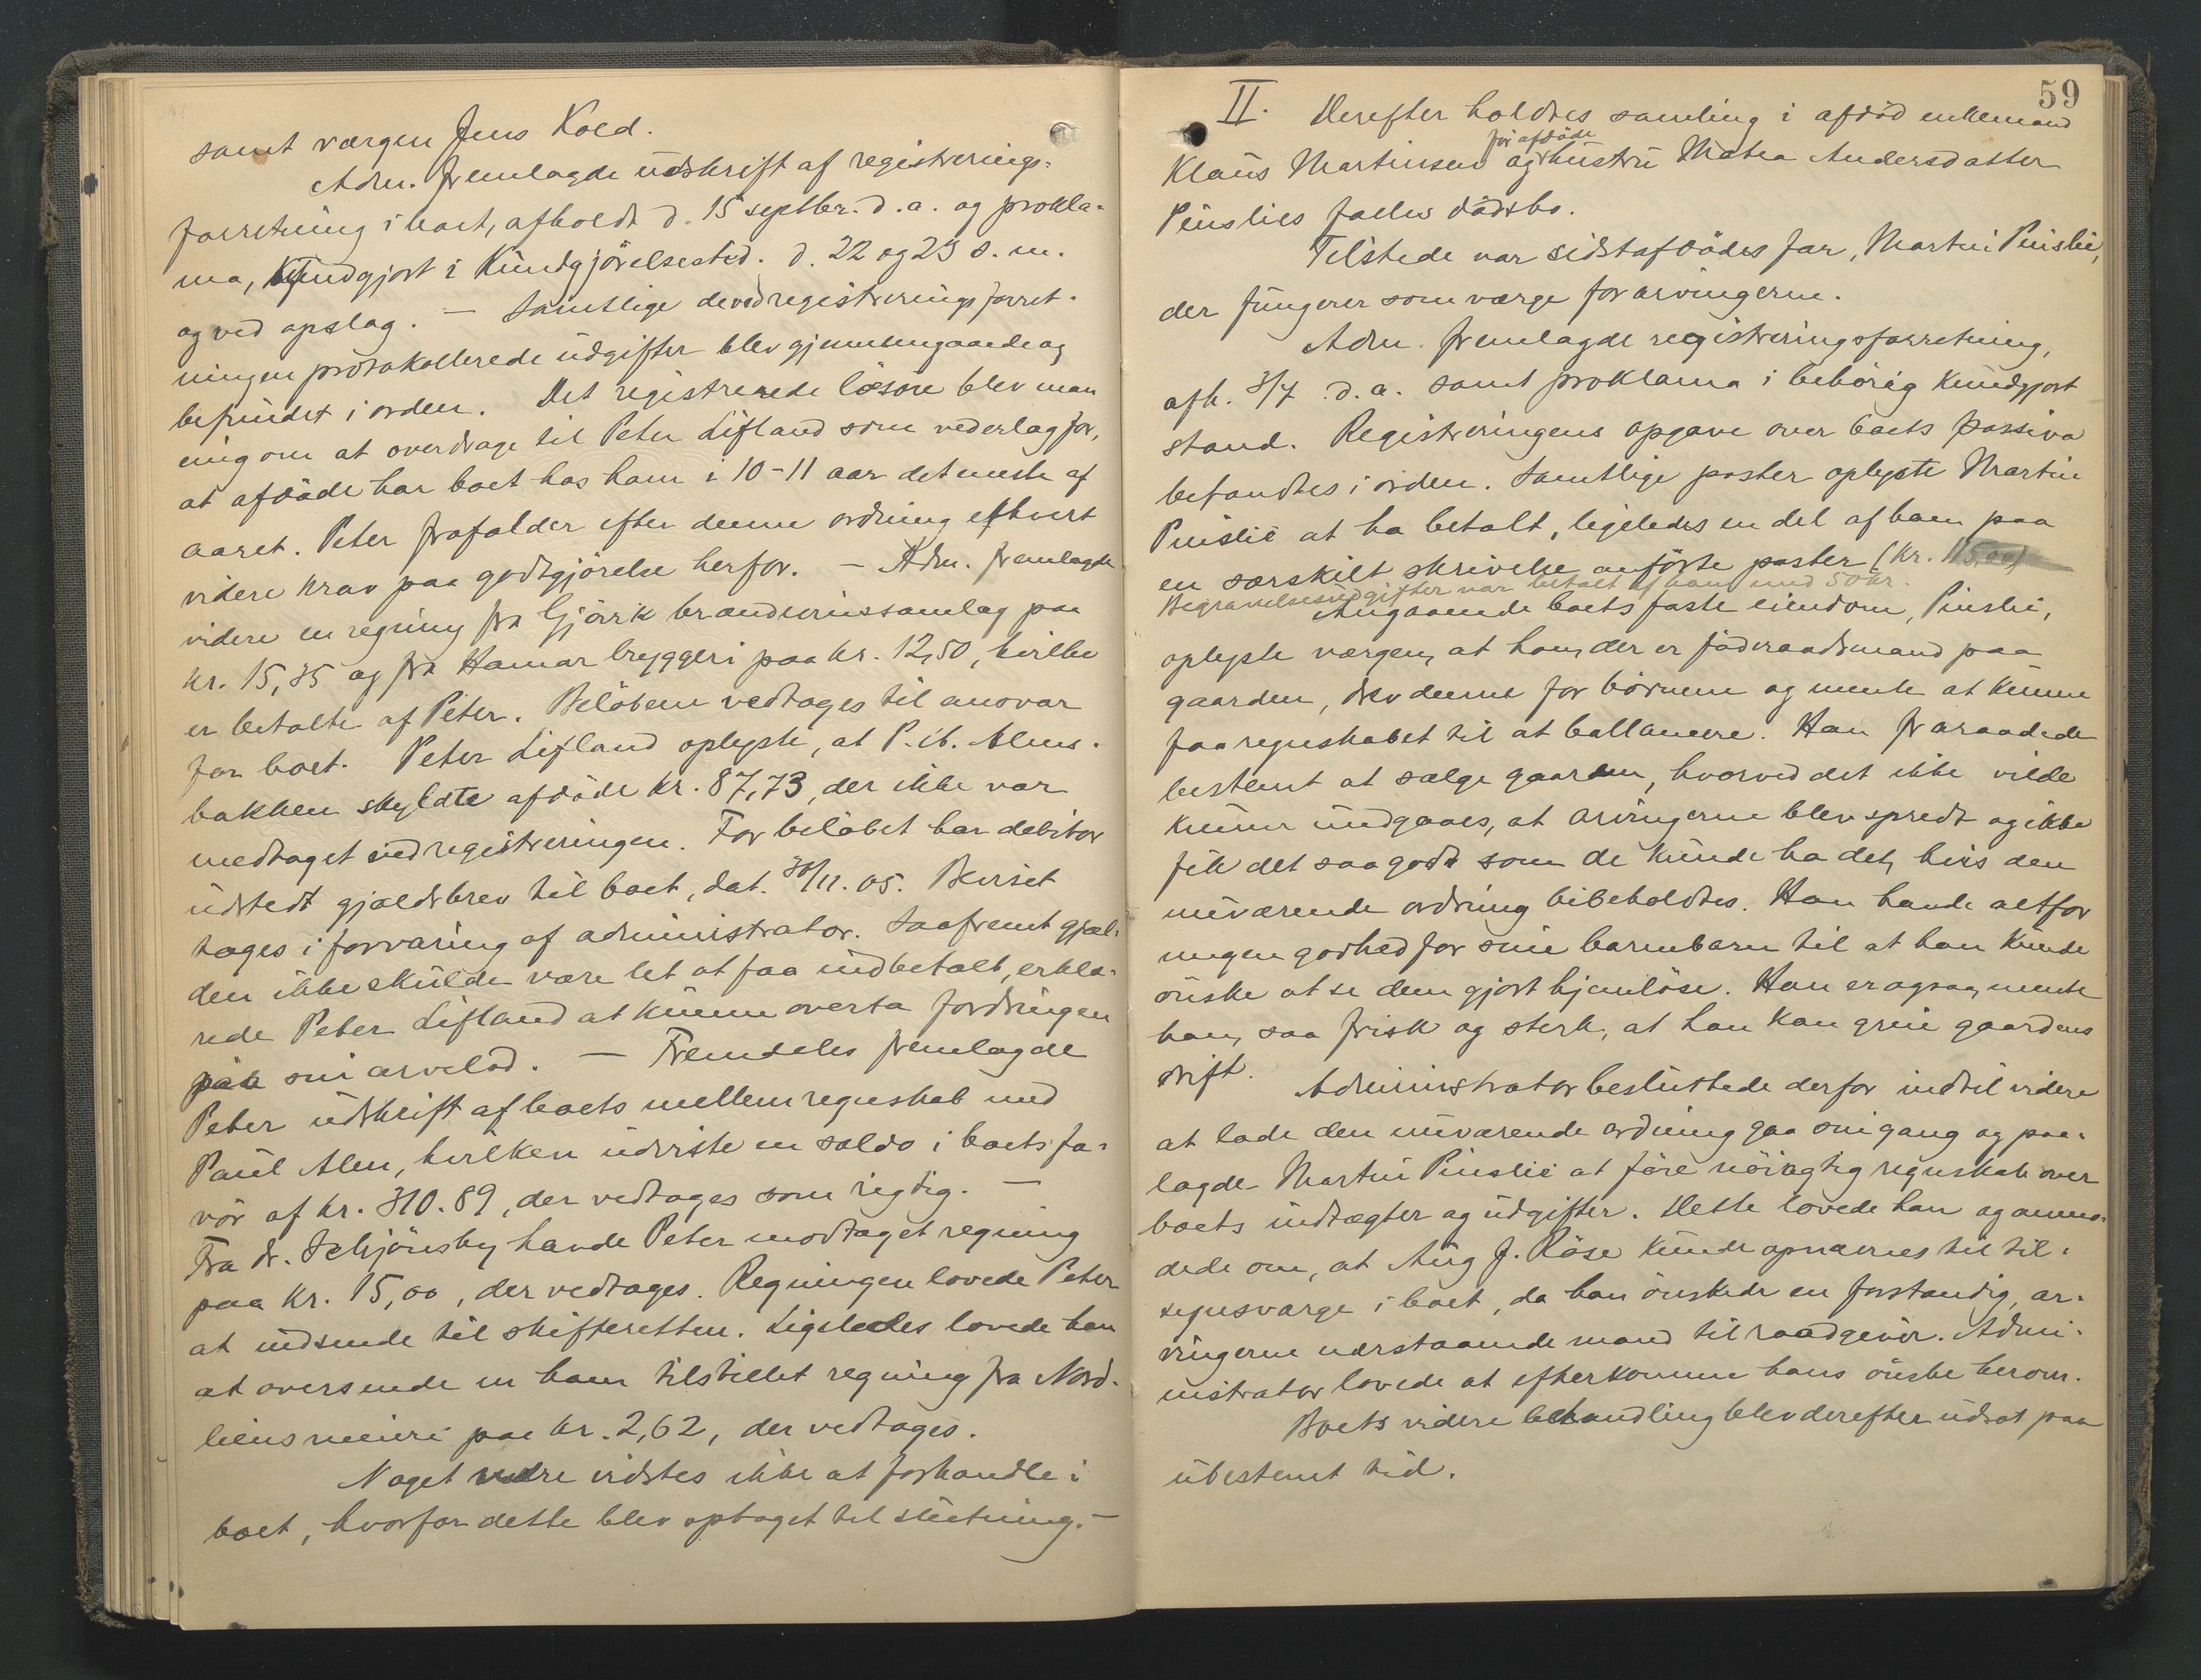 samt værgen Jens Kold.
Adm. fremlagde udskrift af registrerings-
forretning i boet, afholdt d. 15 septbr. d.a. og prokla-
ma, kundgjort i Kundgjörelsestid. d. 22 og 23 s.m.
og ved opslag. – Samtlige de ved registreringsforret-
ningen protokollerede udgifter blev gjennemgaaede og
befundet i orden. Det registrerede lösöre blev man
enig om at overdrage til Peter Lifland som vederlag for,
at afdöde har boet hos ham i 10-11 aar det meste af
aaret. Peter frafalder efter denne ordning ethvert
videre krav paa godtgjörelse herfor. – Adm. fremlagde
videre en regning fra Gjövik brændevinssamlag paa
kr. 15,35 og fra Hamar bryggeri paa kr. 12,50, hvilke
er betalte af Peter. Belöbene vedtages til ansvar
for boet. Peter Lifland oplyste, at P. Alens-
bakken skyldte afdöde kr. 87,73, der ikke var
medtaget ved registreringen. For belöbet har debitor
udstedt gjældsbrev til boet, dat. 30/11. 05. Beviset
tages i forvaring af administrator. Saafremt gjæl-
den ikke skulde være let at faa indbetalt, erklæ-
rede Peter Lifland at kunne overta fordringen
paa sin arvelod. – Fremdeles fremlagde
Peter udskrift af boets mellemregnskab med
Paul Alen, hvilken udviste en saldo i boets fa-
vör af kr. 310.89, der vedtages som rigtig. –
Fra dr. Schjönsby havde Peter modtaget regning
paa kr. 15,00, der vedtages. Regningen lovede Peter
at indsende til skifteretten. Ligeledes lovede han
at oversende en ham tilstillet regning fra Nord-
liens meieri paa kr. 2,62, der vedtages.
Noget videre vidstes ikke at forhandle i
boet, hvorfor dette blev optaget til slutning. –
59
II. Derefter holdtes samling i afdöd enkemand
for afdöde
Klaus Martinsen og hustru Mathea Andersdatter
Pinslies fælles dödsbo.
Tilstede var sidstafdödes far, Martin Pinslie,
der fungerer som værge for arvingerne.
Adm. fremlagde registreringsforretning,
afh. 3/7 d.a. samt proklama i behörig kundgjort
stand. Registreringens opgave over boets passiva
befandtes i orden. Samtlige poster oplyste Martin
Pinslie at ha betalt, ligeledes en del af ham paa
en særskilt skrivelse anförte poster (kr. 115,00)
Begravelsesudgifter var betalt af ham med 50 kr.
Angaaende boets faste eiendom, Pinslie,
oplyste værgen, at han, der er föderaadsmand paa
gaarden, drev denne for börnene og mente at kunne
faa regnskabet til at ballancere. Han fraraadede
bestemt at sælge gaarden, hvorved det ikke vilde
kunne undgaaes, at arvingerne blev spredt og ikke
fik det saa godt som de kunde ha det, hvis den
nuværende ordning bibeholdtes. Han havde altfor
megen godhed for sine barnebarn til at han kunde
önske at se dem gjort hjemlöse. Han er ogsaa, mente
han, saa frisk og sterk, at han kan greie gaardens
drift.
Administrator besluttede derfor indtil videre
at lade den nuværende ordning gaa sin gang og paa-
lagde Martin Pinslie at före nöiagtig regnskab over
boets indtægter og udgifter. Dette lovede han og anmo-
dede om, at Aug J. Röse kunde opnævnes til til-
synsværge i boet, da han önskede en forstandig, ar-
vingerne nærstaaende mand til raadgiver. Admi-
nistrator lovede at efterkomme hans önske herom.
Boets videre behandling blev derefter udsat paa
ubestemt tid.